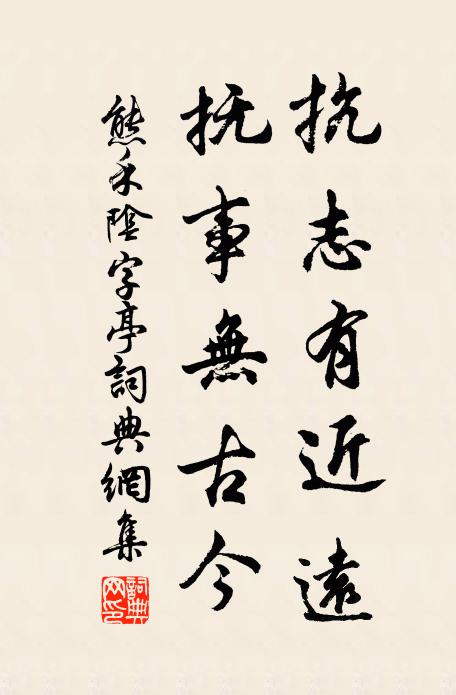 抗志有近遠
抚事無古今
熊禾陰字亭詞典網集
詞典网印